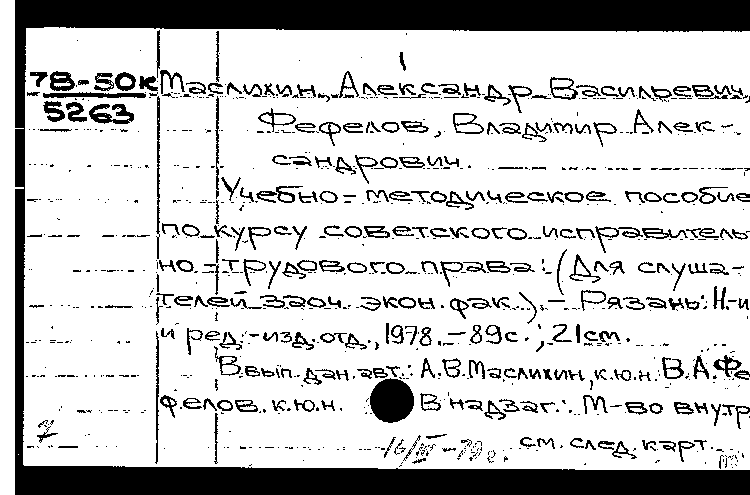 1
78-50к Маслихин, Александр Васильевич,
5263
Фефелов, Владимир Алек-
сандрович.
Учебно-методическое пособие
по курсу советского исправитель
но-трудового права: (Для слуша-
телей заоч. экон. фак.). - Рязань: Н.-и
и ред.-изд. отд., 1978. - 89 с.; 21 см.
В вып. дан. авт.: А.В. Маслихин, к.ю.н. В.А. Фе
фелов. к.ю.н. В надзаг.: М-во внутр
см. след. карт.
16/III-79 г.